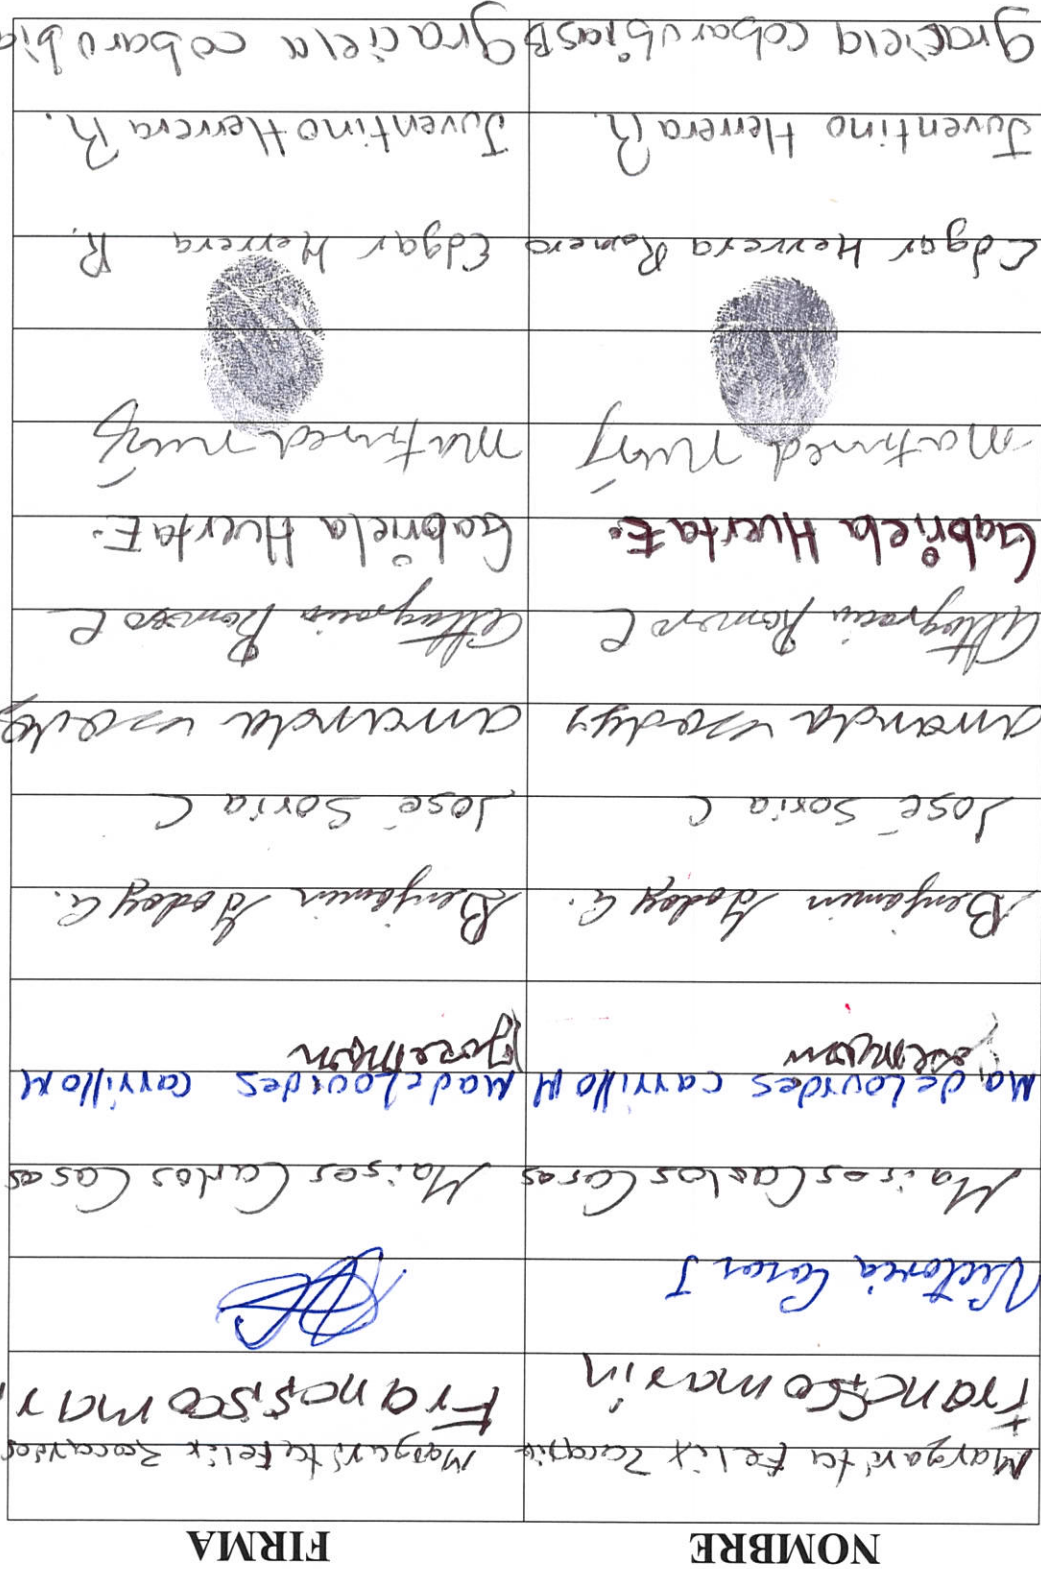 NOMBRE FIRMA
Margarita Felix Zacarias Margarita Felix Zacarias
Francisco marin Francisco mari
Victoria Coras J
Moises Carlos Casas Moises Carlos Casas
Ma de Lourdes carrillo M Ma de Lourdes carrillo M
Benjamin Godoy G. Benjamin Godoy G.
José Soria C José Soria C
amanda amanda
Altagracia Romero C Altagracia Romero C
Gabriela Huerta E. Gabriela Huerta E.
Edgar Herrera Romero Edgar Herrera R.
Juventino Herrera R. Juventino Herrera R.
graciela cobarubias B graciela cobarubia